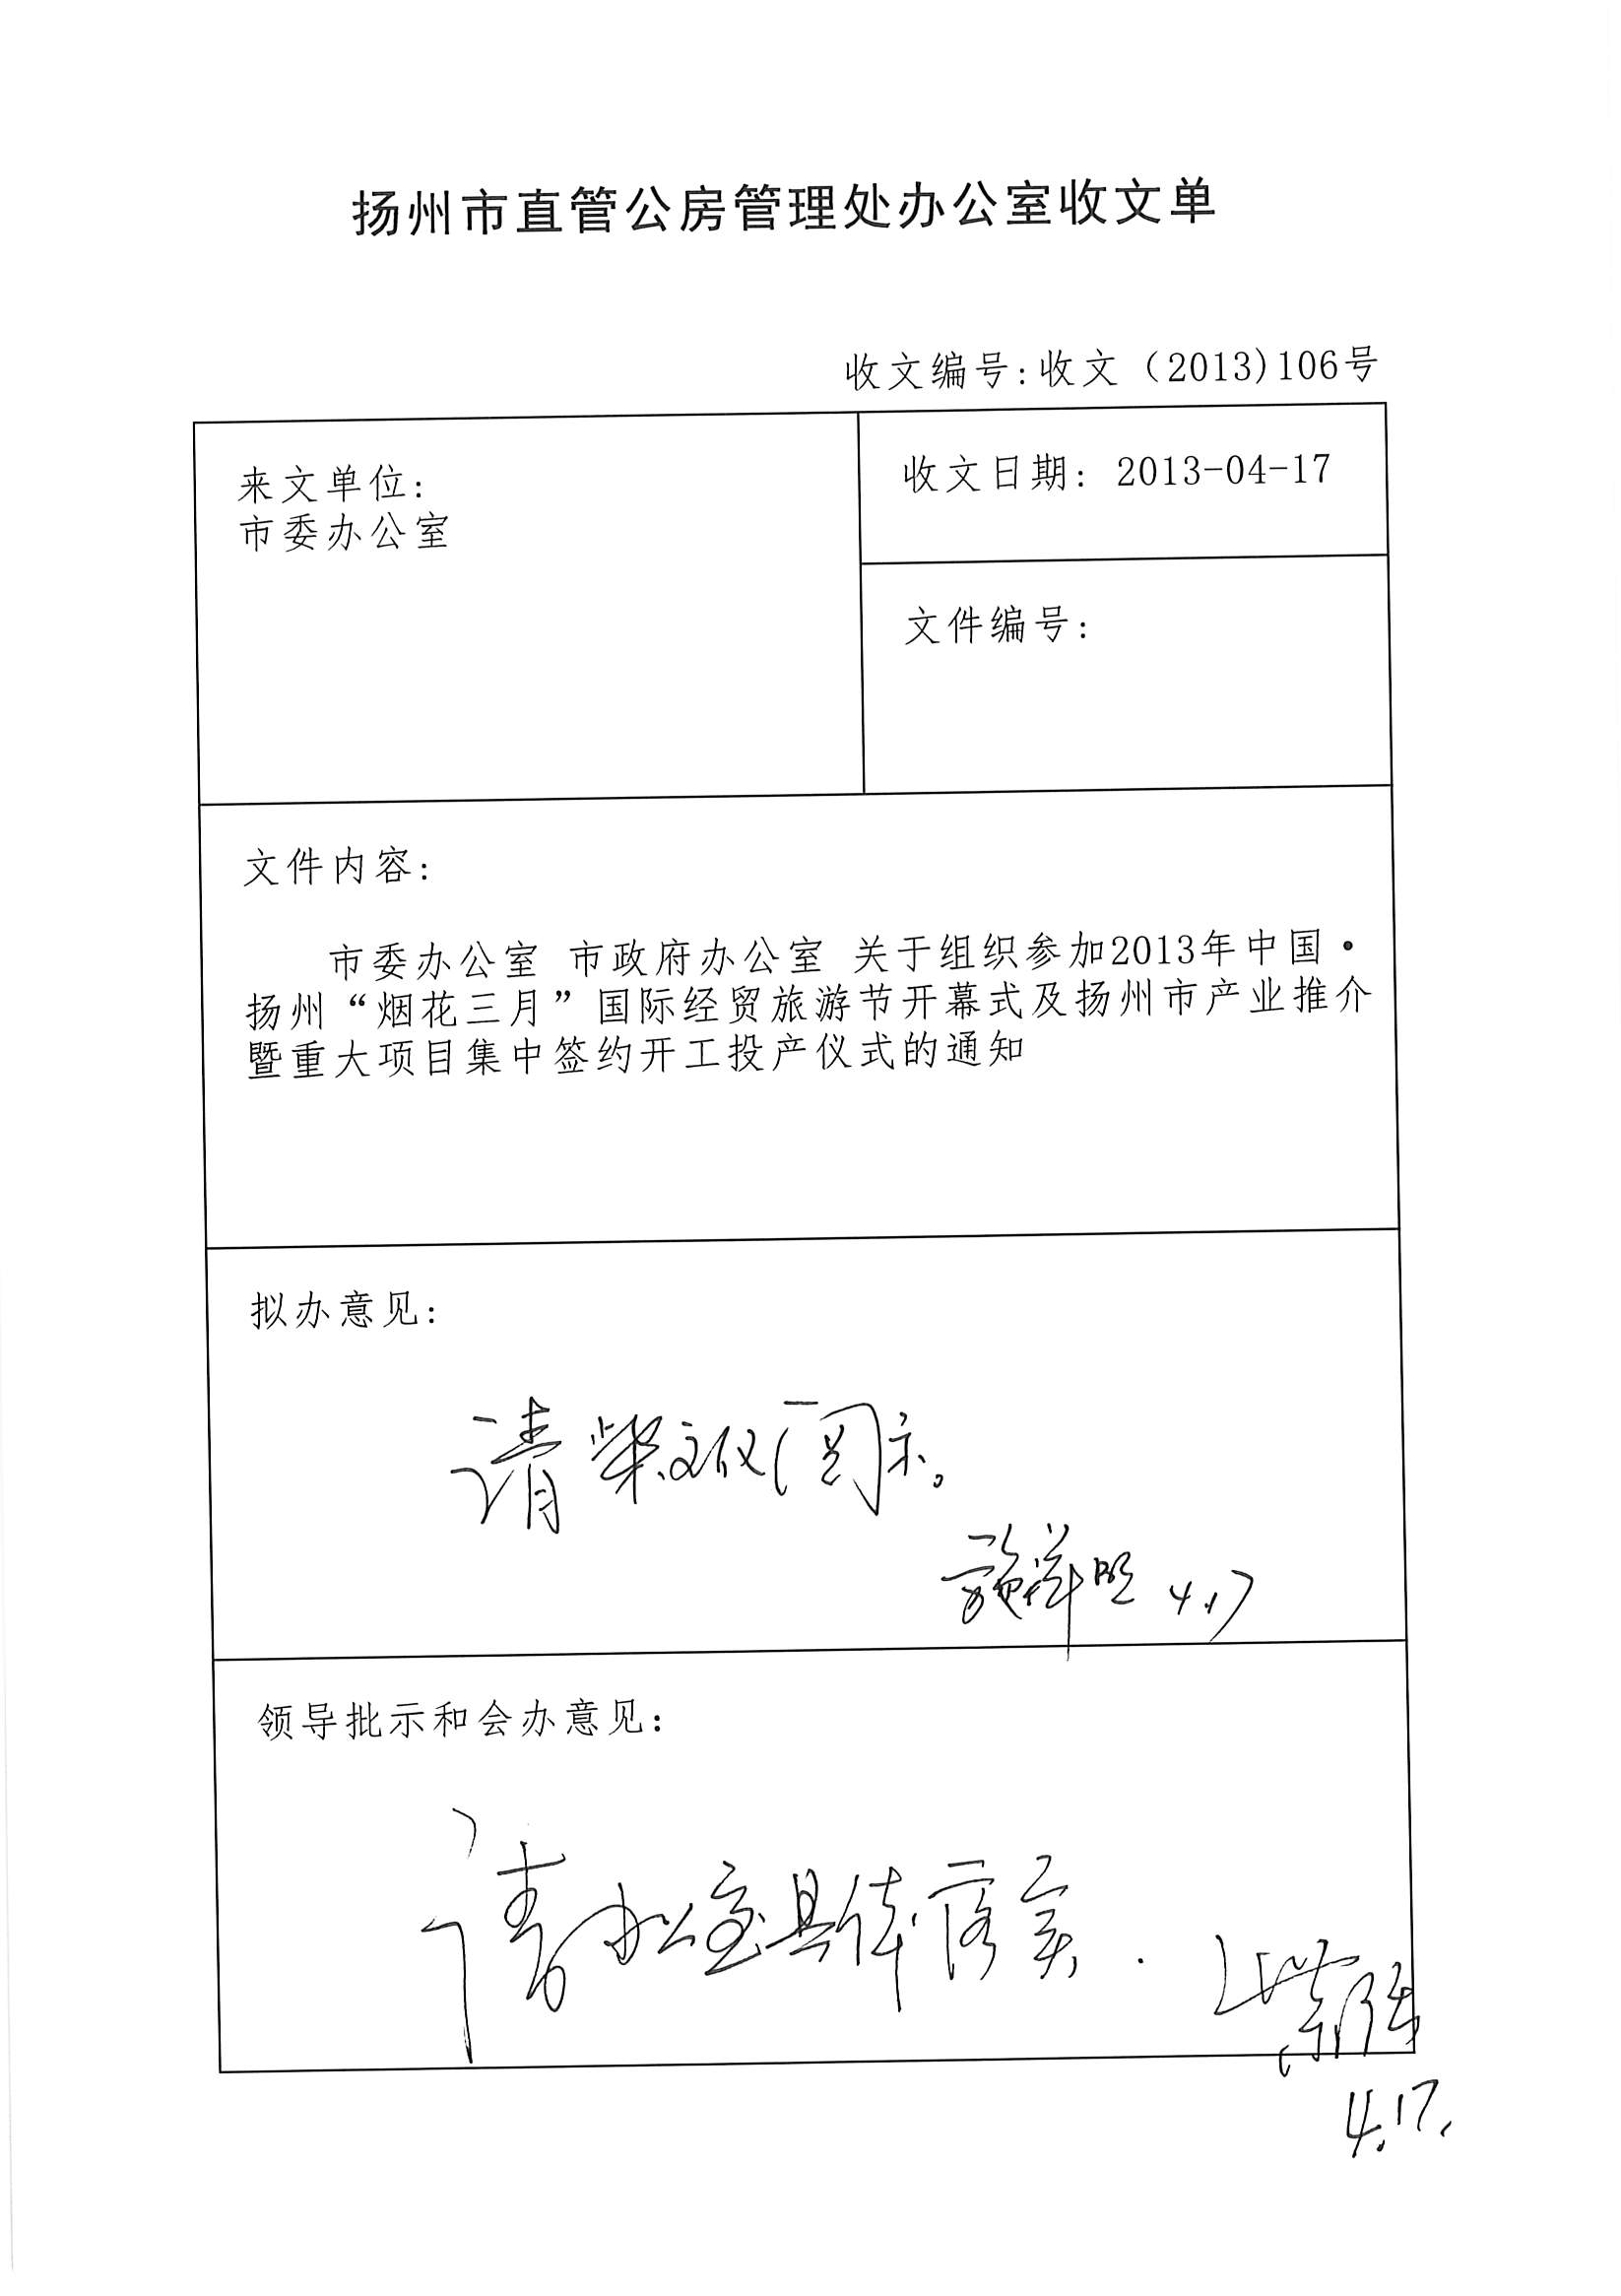 扬州市直管公房管理处办公室收文单
收文编号:收文（2013)106号
来文单位:
市委办公室
收文日期: 2013-04-17
文件编号:
文件内容:
市委办公室 市政府办公室 关于组织参加2013年中国·
扬州“烟花三月”国际经贸旅游节开幕式及扬州市产业推介
暨重大项目集中签约开工投产仪式的通知
拟办意见:
请柴 阅示。
4.17
领导批示和会办意见:
请办公室具体落实.
4.17.